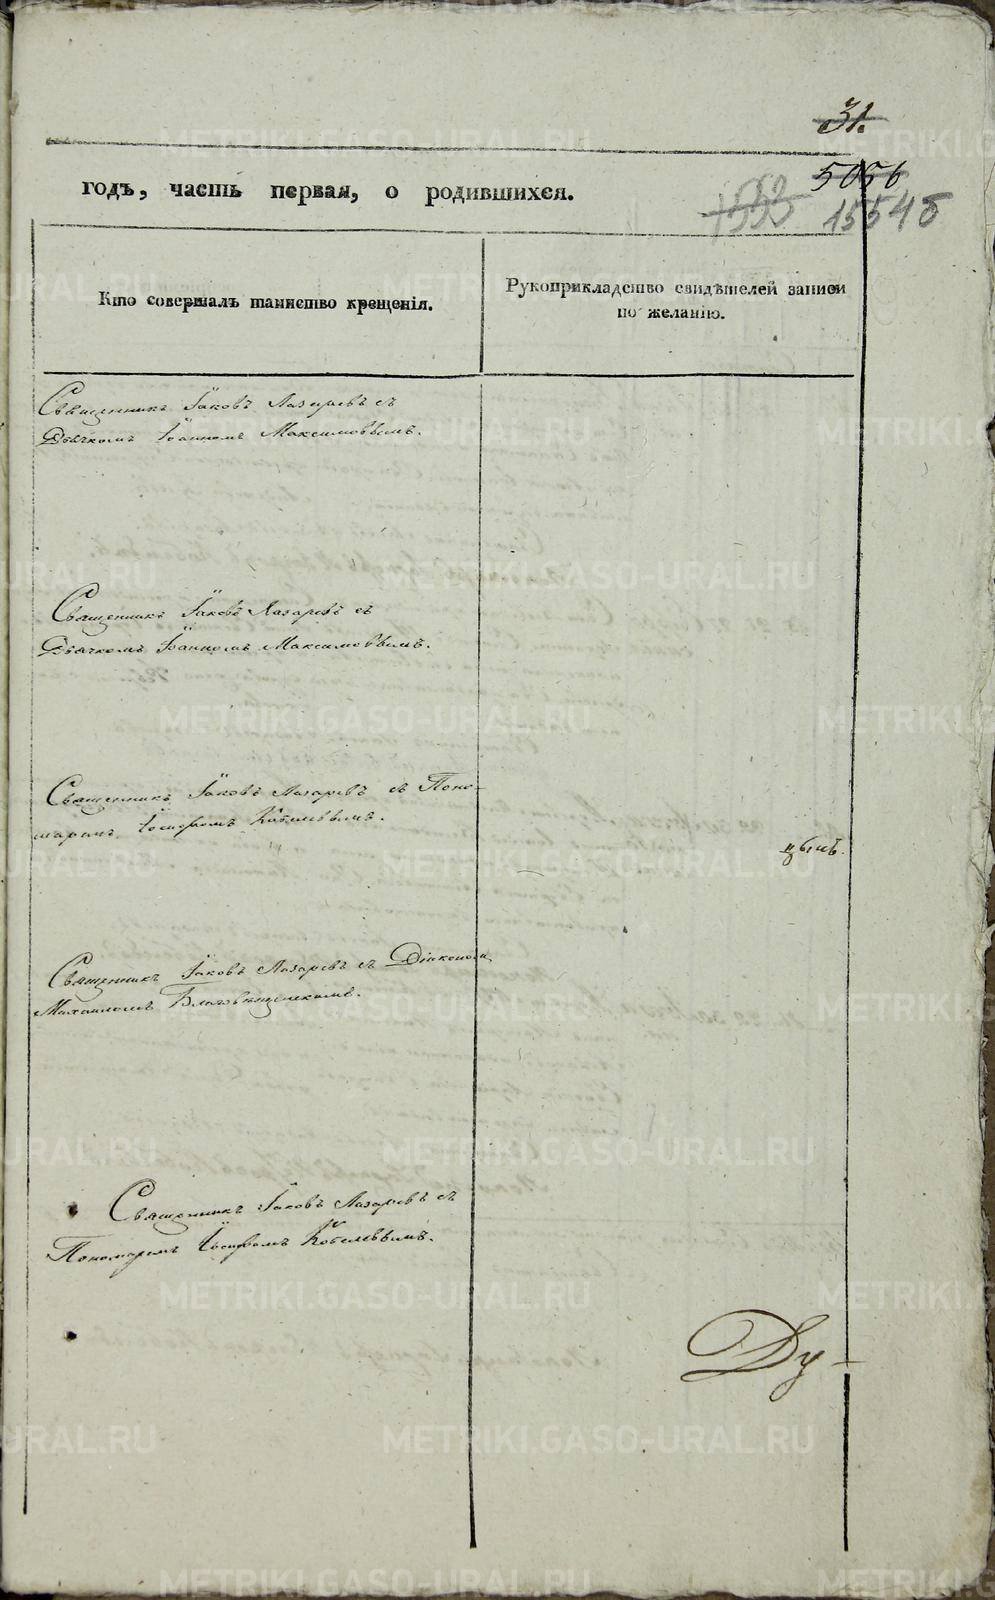 31.
годъ, часть первая, о родившихся.
5056
1553
15545
Кто совершалъ таинство крещенія.
Рукоприкладство свидѣтелей записи
по желанію.
Священникъ Іаковъ Лазаревъ съ
Дьячкомъ Іоанномъ Максимовымъ.
Священникъ Іаковъ Лазаревъ съ
Дьячкомъ Іоанномъ Максимовымъ.
Священникъ Іаковъ Лазаревъ съ Поно-
маремъ Іосифомъ Кобелевымъ.
цынъ.
Священникъ Іаковъ Лазаревъ съ Діакономъ
Михаиломъ Благовѣщенскимъ.
Священникъ Іаковъ Лазаревъ съ
Пономаремъ Іосифомъ Кобелевымъ.
Ду-
METRIKI.GASO-URAL.RU